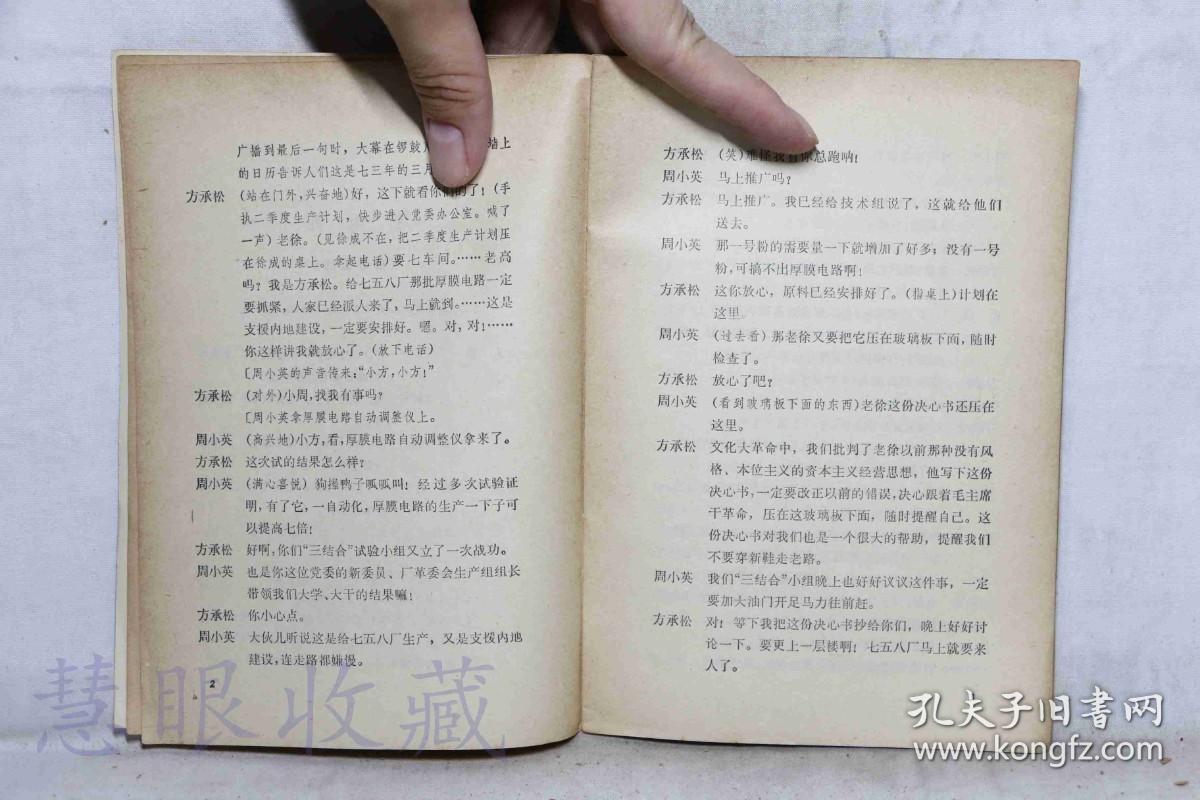 广播到最后一句时，大幕在锣鼓
墙上
的日历告诉人们这是七三年的三月
方承松 (站在门外，兴奋地)好，这下就看你们的了！(手
执二季度生产计划，快步进入党委办公室。喊了
一声)老徐。(见徐成不在，把二季度生产计划压
在徐成的桌上。拿起电话)要七车间。……老高
吗？我是方承松。给七五八厂那批厚膜电路一定
要抓紧，人家已经派人来了，马上就到。……这是
支援内地建设，一定要安排好。嗯。对，对！……
你这样讲我就放心了。(放下电话)
〔周小英的声音传来：“小方，小方！”
方承松 (对外)小周，找我有事吗？
〔周小英拿厚膜电路自动调整仪上。
周小英 (高兴地)小方，看，厚膜电路自动调整仪拿来了。
方承松 这次试的结果怎么样？
周小英 (满心喜悦)狗撵鸭子呱呱叫！经过多次试验证
明，有了它，一自动化，厚膜电路的生产一下子可
以提高七倍！
方承松 好啊，你们“三结合”试验小组又立了一次战功。
周小英 也是你这位党委的新委员、厂革委会生产组组长
带领我们大学、大干的结果嘛！
方承松 你小心点。
周小英 大伙儿听说这是给七五八厂生产，又是支援内地
建设，连走路都嫌慢。
2
方承松 (笑)难怪我看你总跑呐！
周小英 马上推广吗？
方承松 马上推广。我已经给技术组说了，这就给他们
送去。
周小英 那一号粉的需要量一下就增加了好多；没有一号
粉，可搞不出厚膜电路啊！
方承松 这你放心，原料已经安排好了。(指桌上)计划在
这里。
周小英 (过去看)那老徐又要把它压在玻璃板下面，随时
检查了。
方承松 放心了吧？
周小英 (看到玻璃板下面的东西)老徐这份决心书还压在
这里。
方承松 文化大革命中，我们批判了老徐以前那种没有风
格、本位主义的资本主义经营思想，他写下这份
决心书，一定要改正以前的错误，决心跟着毛主席
干革命，压在这玻璃板下面，随时提醒自己。这
份决心书对我们也是一个很大的帮助，提醒我们
不要穿新鞋走老路。
周小英 我们“三结合”小组晚上也好好议议这件事，一定
要加大油门开足马力往前赶。
方承松 对！等下我把这份决心书抄给你们，晚上好好讨
论一下。要更上一层楼啊！七五八厂马上就要来
人了。
慧眼收藏
孔夫子旧書网
www.kongfz.com